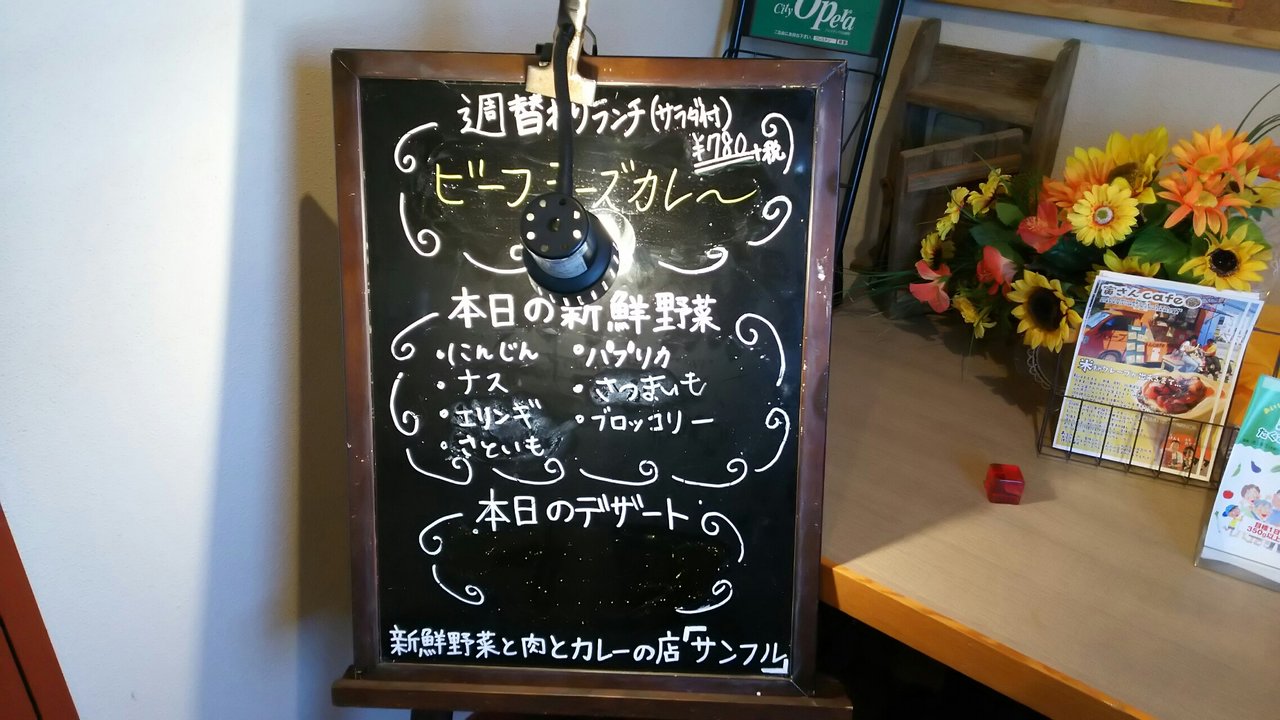 City Opera
週替わりランチ(サラダ付)
¥780+税
ビーフ
ーズカレ～
本日の新鮮野菜
・にんじん
・ナス
・エリンギ
・さといも
・パプリカ
・さつまいも
・ブロッコリー
本日のデザート
新鮮野菜と肉とカレーの店「サンフル」
cafe